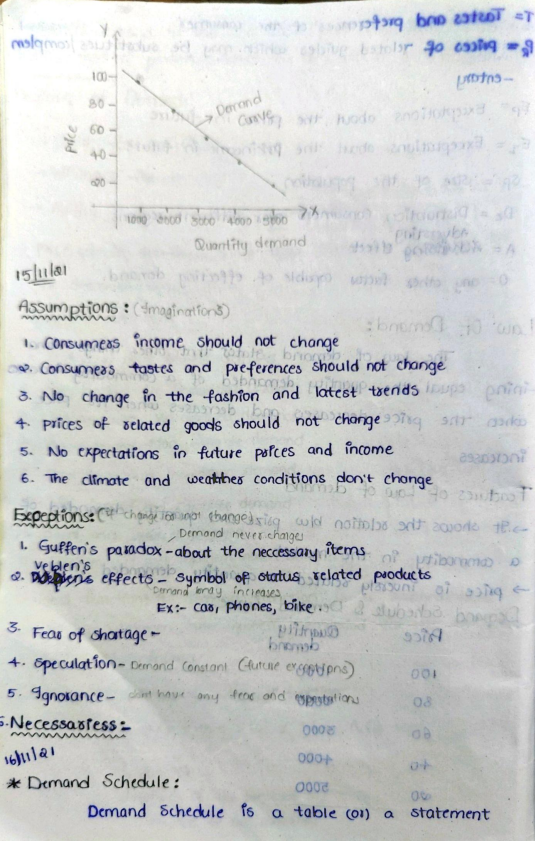 Y
100
80
60
40
20
Price
Demand
curve
1000 2000 3000 4000 5000 X
Quantity demand
15/11/21
Assumptions: (Imaginations)
1. Consumers income should not change
2. Consumers tastes and preferences should not change
3. No change in the fashion and latest trends
4. Prices of related goods should not change
5. No expectations in future prices and income
6. The climate and weather conditions don't change
Exceptions: (if change or not change)
Demand never change
1. Guffen's paradox - about the neccessary items
Veblen's
2. effects - symbol of status related products
Demand only increases
Ex:- car, phones, bike..
3. Fear of shortage -
4. Speculation - Demand Constant (future exceptions)
5. Ignorance - don't have any fear and expectations
6. Necessariess:-
16/11/21
* Demand Schedule:
Demand Schedule is a table (or) a statement